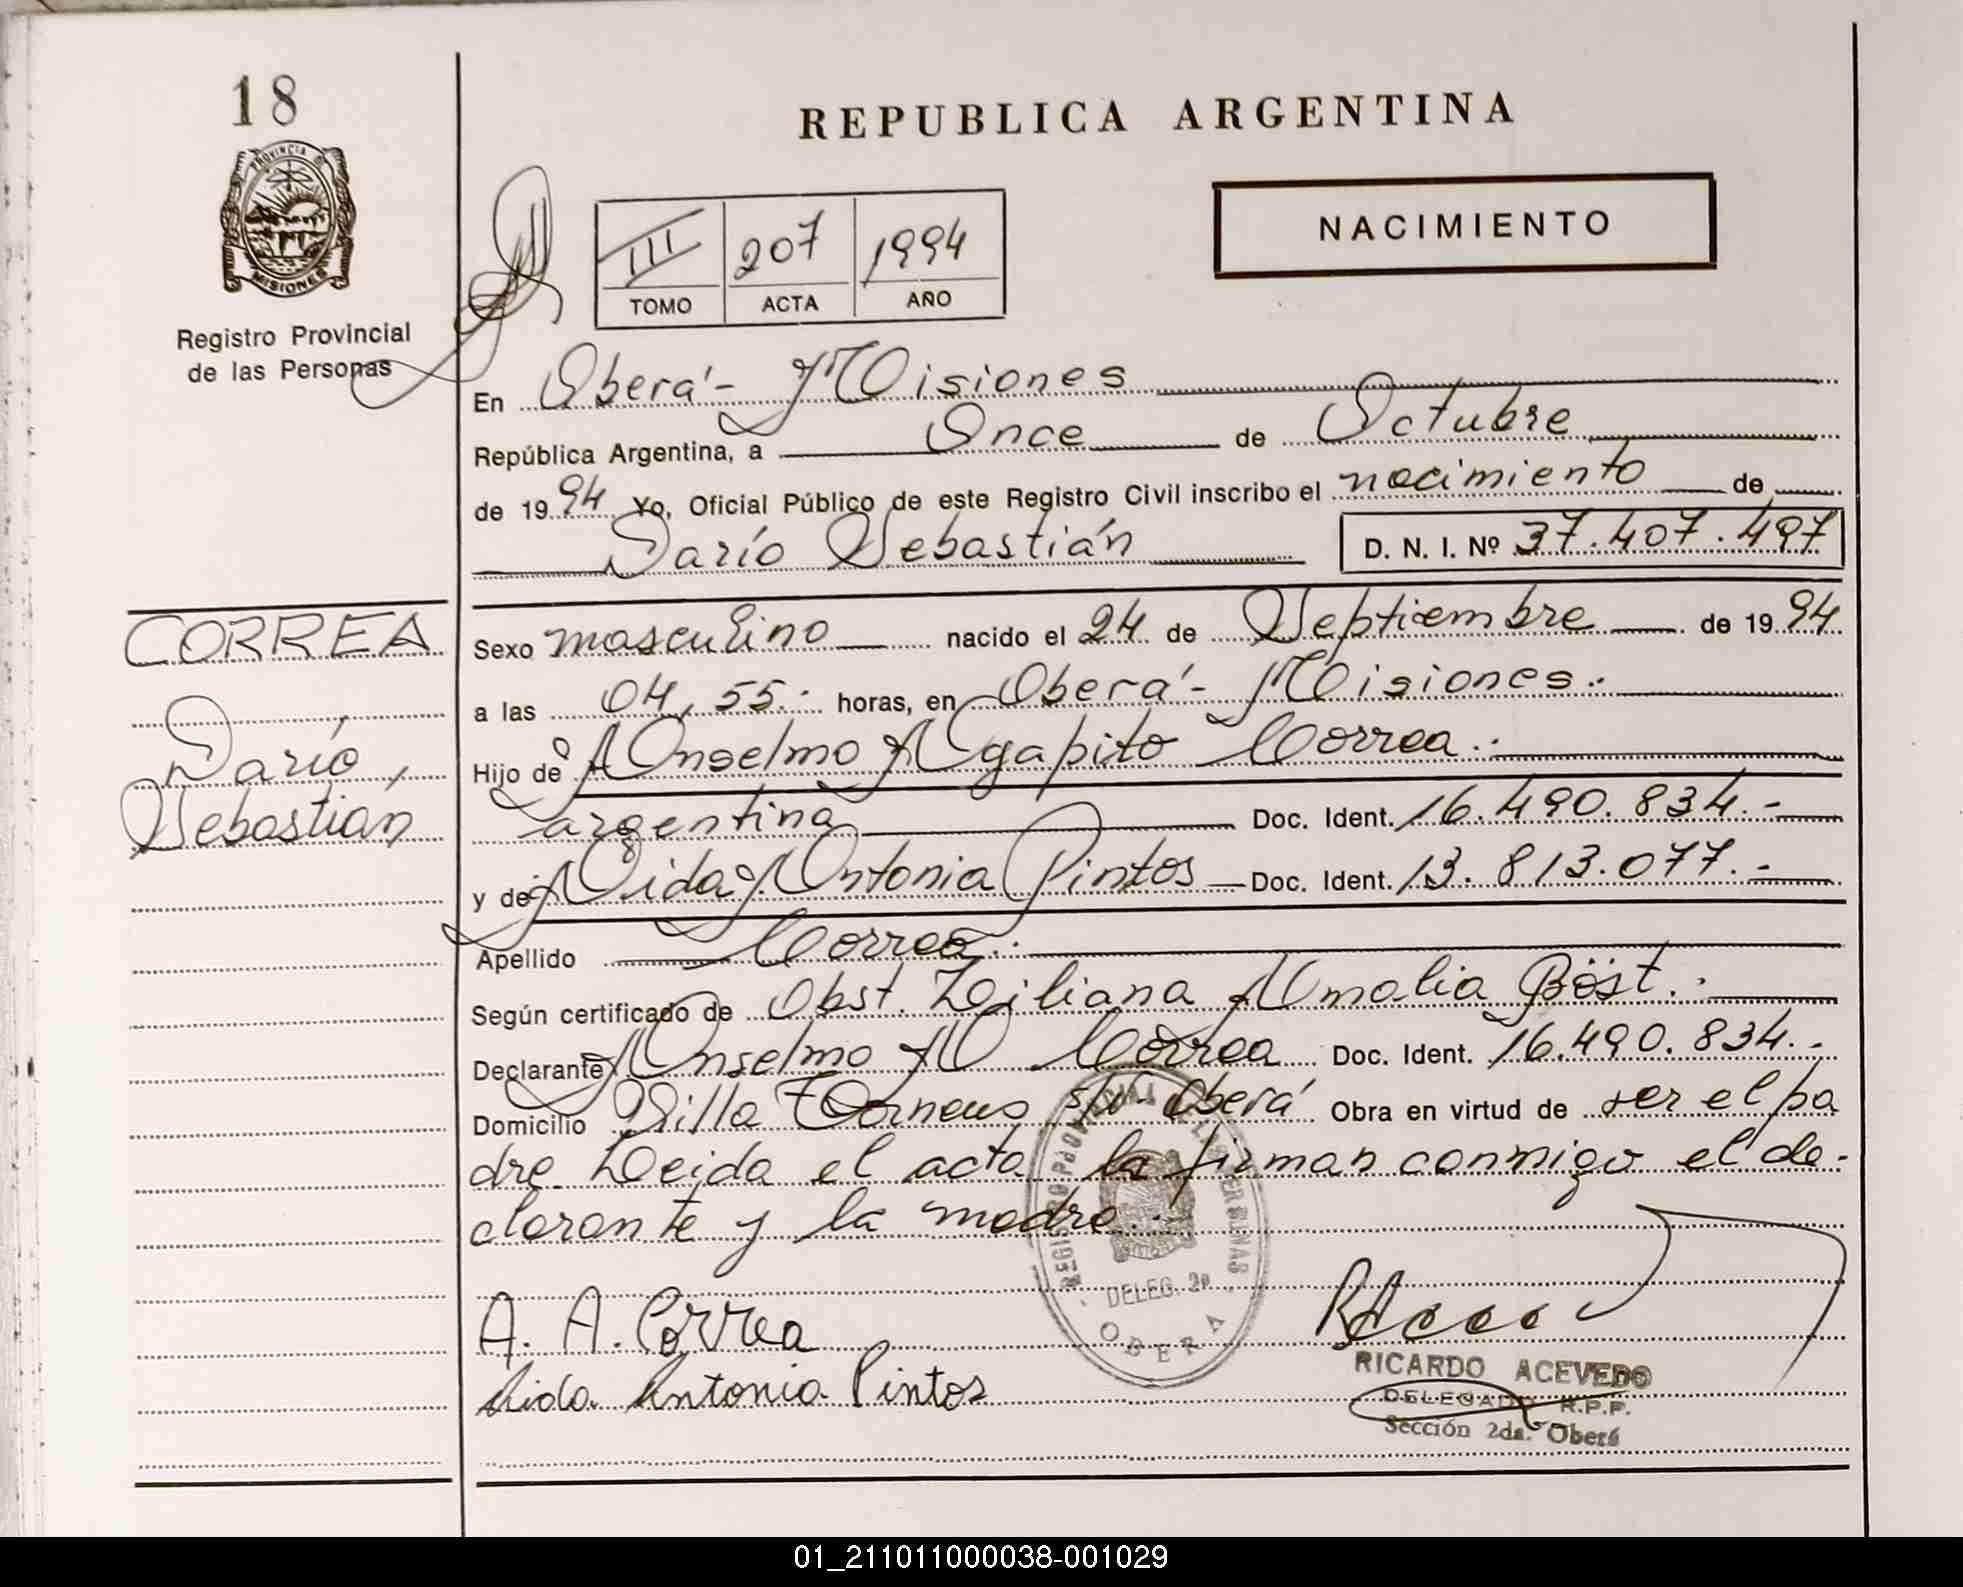 18
PROVINCIA D
MISIONES
Registro Provincial
de las Personas
REPUBLICA ARGENTINA
NACIMIENTO
III 207 1994
TOMO ACTA AÑO
En Oberá - Misiones
República Argentina, a Once de Octubre
de 1994 Yo, Oficial Público de este Registro Civil inscribo el nacimiento de
Darío Sebastián D. N. I. Nº 37.407.497
CORREA
Darío,
Sebastián
Sexo masculino nacido el 24 de Septiembre de 1994
a las 04,55. horas, en Oberá - Misiones.
Hijo de Anselmo Agapito Correa.
argentina Doc. Ident. 16.490.834.-
y de Aida Antonia Pintos Doc. Ident. 13.813.077.-
Apellido Correa.
Según certificado de Obst. Liliana Amalia Böst.
Declarante Anselmo A Correa Doc. Ident. 16.490.834.-
Domicilio Villa s/n - Oberá Obra en virtud de ser el pa
dre. Leida el acta la firman conmigo el de-
clarante y la madre.
A. A. Correa
Aida Antonia Pintos
DELEG. 2ª
OBERA
RICARDO ACEVEDO
DELEGADO R.P.P.
Sección 2da. Oberá
01_211011000038-001029